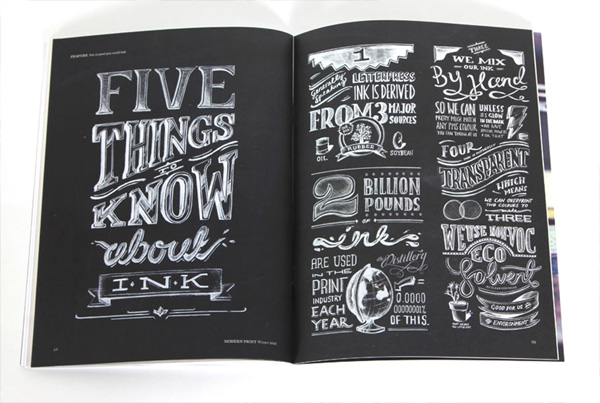 FIVE
THINGS
TO
KNOW
about
INK
MODERN PRINT
1
Generally
Speaking
LETTERPRESS
INK IS DERIVED
FROM 3 MAJOR
SOURCES
OIL
RUBBER
SOYBEAN
2 BILLION
POUNDS
OF
ink
ARE USED
IN THE
PRINT
INDUSTRY
EACH
YEAR
Distillery
=
0.0000
OF THIS.
THREE
WE MIX
OUR INK
By Hand
SO WE CAN
PRETTY MUCH MATCH
ANY PMS COLOUR
UNLESS
IT'S GLOW
IN THE DARK
FOUR
TRANSPARENT
WHICH
MEANS
WE CAN OVERPRINT
TWO COLOURS TO
make
THREE
WE USE NON VOC
ECO
Solvent
GOOD FOR US
ENVIRONMENT